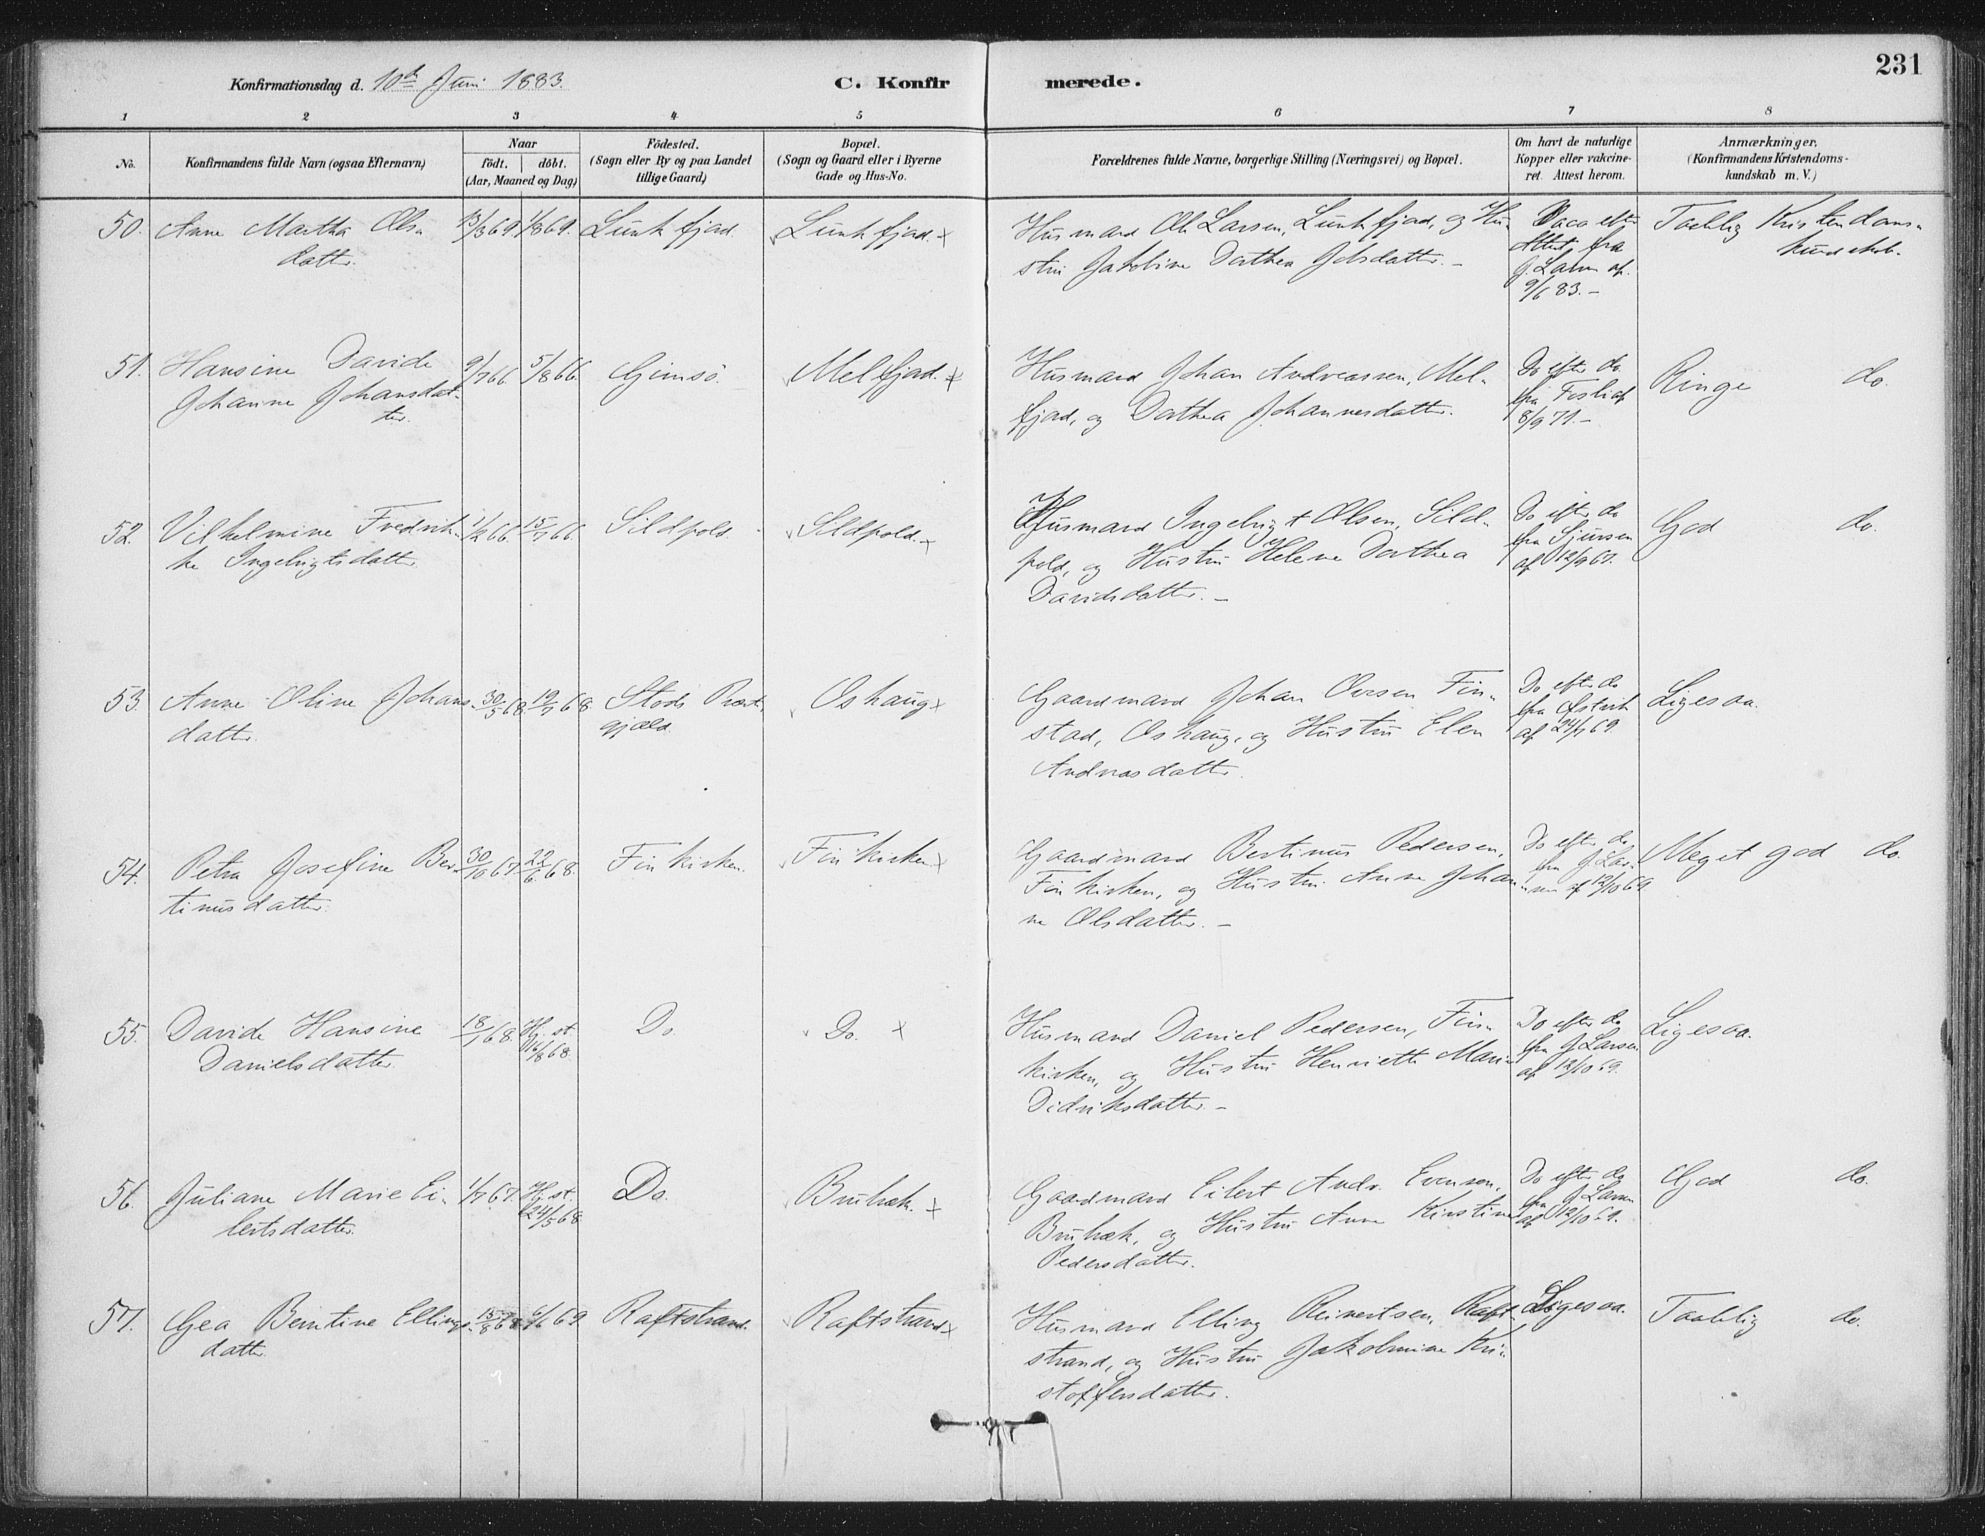 231
Konfirmationsdag d. 10de Juni 1883. C. Konfirmerede.
1 2 3 4 5 6 7 8
No. Konfirmandens fulde Navn (ogsaa Efternavn) Naar födt. döbt. (Aar, Maaned og Dag) Födested. (Sogn eller By og paa Landet tillige Gaard) Bopæl. (Sogn og Gaard eller i Byerne Gade og Hus-No. Forældrenes fulde Navne, borgerlige Stilling (Næringsvei) og Bopæl. Om havt de naturlige Kopper eller vakcineret. Attest herom. Anmærkninger. (Konfirmandens Kristendomskundskab m. V.)
50. Anne Martha Ols- 13/3 69 1/8 69. Lunkfjad Lunkfjad. x Husmand Ole Larsen, Lunkfjad, og Hu- Vacc efter Taalelig Kristendoms-
datter. stru Jakobine Dorthea Jakobsdatter. - Attest fra kundskab.
J. Larsen af
9/6 83. -
51. Hansine Davide 9/7 66 5/8 66. Gimsö. Melfjad. x Husmand Johan Andreassen, Mel- Do efter do Ringe do.
Johanne Johansdat- fjad, og Dorthea Johannesdatter. fra Foslid
ter. 8/9 71. -
52. Vilhelmine Fredrik- 15/7 66. Sildpold. Sildpold. x Husmand Ingebrigt Olsen, Sild- Do efter do God do.
ke Ingebrigtsdatter. pold, og Hustru Helene Dorthea fra Sjursen
Davidsdatter. - af 12/9 67.
53. Anne Oline Johans- 30/5 68 19/7 68 Stods Præst- Oshaug x Gaardmand Johan Olsen Fin- Do efter do Ligesaa.
datter. gjæld. stad, Oshaug, og Hustru Elen fra
Andreasdatter. af 24/1 69.
54. Petra Josefine Ber- 30/10 67. 22/6. 68. Finkirken. Finkirken x Gaardmand Bertinus Pedersen, Do efter do Meget god do.
tinusdatter. Finkirken, og Hustru Anne Johan- fra J. Lar-
ne Olsdatter. - sen af 12/10 69
55. Davide Hansine 18/1 68. Hj. st. Do. Do. x Husmand Daniel Pedersen, Fin- Do efter do Ligesaa.
Danielsdatter. 16/8 68. kirken, og Hustru Henriette Marie fra J Larsen
Didriksdatter. - af 12/10 69.
56. Juliane Marie Ei- 1/7 67. Hj. st. Do. Bruhæk. x Gaardmand Eilert Andr. Evensen, Do efter do God do.
lertsdatter. 24/5 68 Bruhæk, og Hustru Anne Kirstine fra J Larsen
Pedersdatter. af 12/10 69.
57. Gea Berntine Ellings- 15/8 68 6/6 69 Raftstrand. Raftstrand x Husmand Elling Reinertsen, Raft- Ligesaa. Taalelig do.
datter. strand, og Hustru Jakobmine Kri-
stoffersdatter.